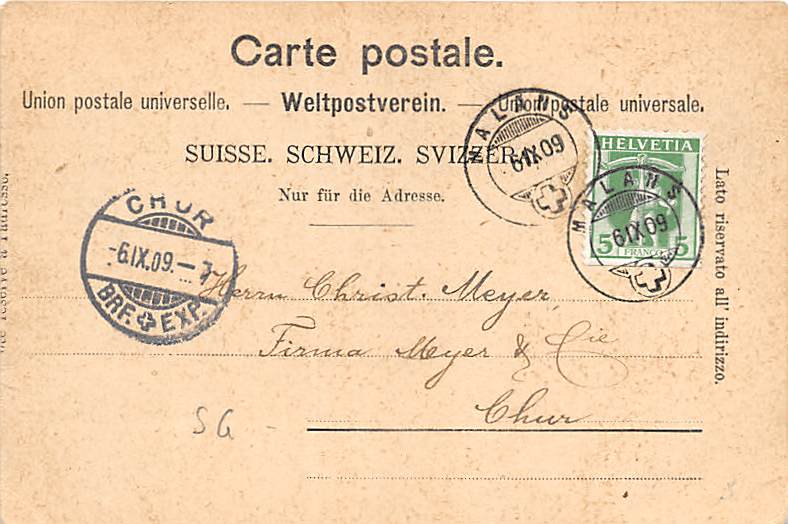 Carte postale.
Union postale universelle. — Weltpostverein. — Union postale universale.
SUISSE. SCHWEIZ. SVIZZERA.
Nur für die Adresse.
MALANS
6 IX 09
HELVETIA
5 5
FRANCO
MALANS
6 IX 09
CHUR
-6.IX.09.-7
BRF. EXP.
Lato riservato all' indirizzo.
Herrn Christ. Meyer
Firma Meyer & Cie
Chur
SG -